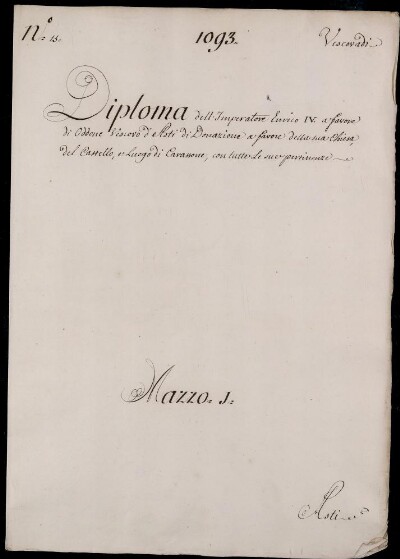 N.º 15. 1093. Vescovadi
Diploma dell'Imperatore Enrico IV. a favore
di Oddone Vescovo d'Asti di Donazione a favore della sua Chiesa,
del Castello, e Luogo di Carassone, con tutte le sue pertinenze
Mazzo. 1.
Asti